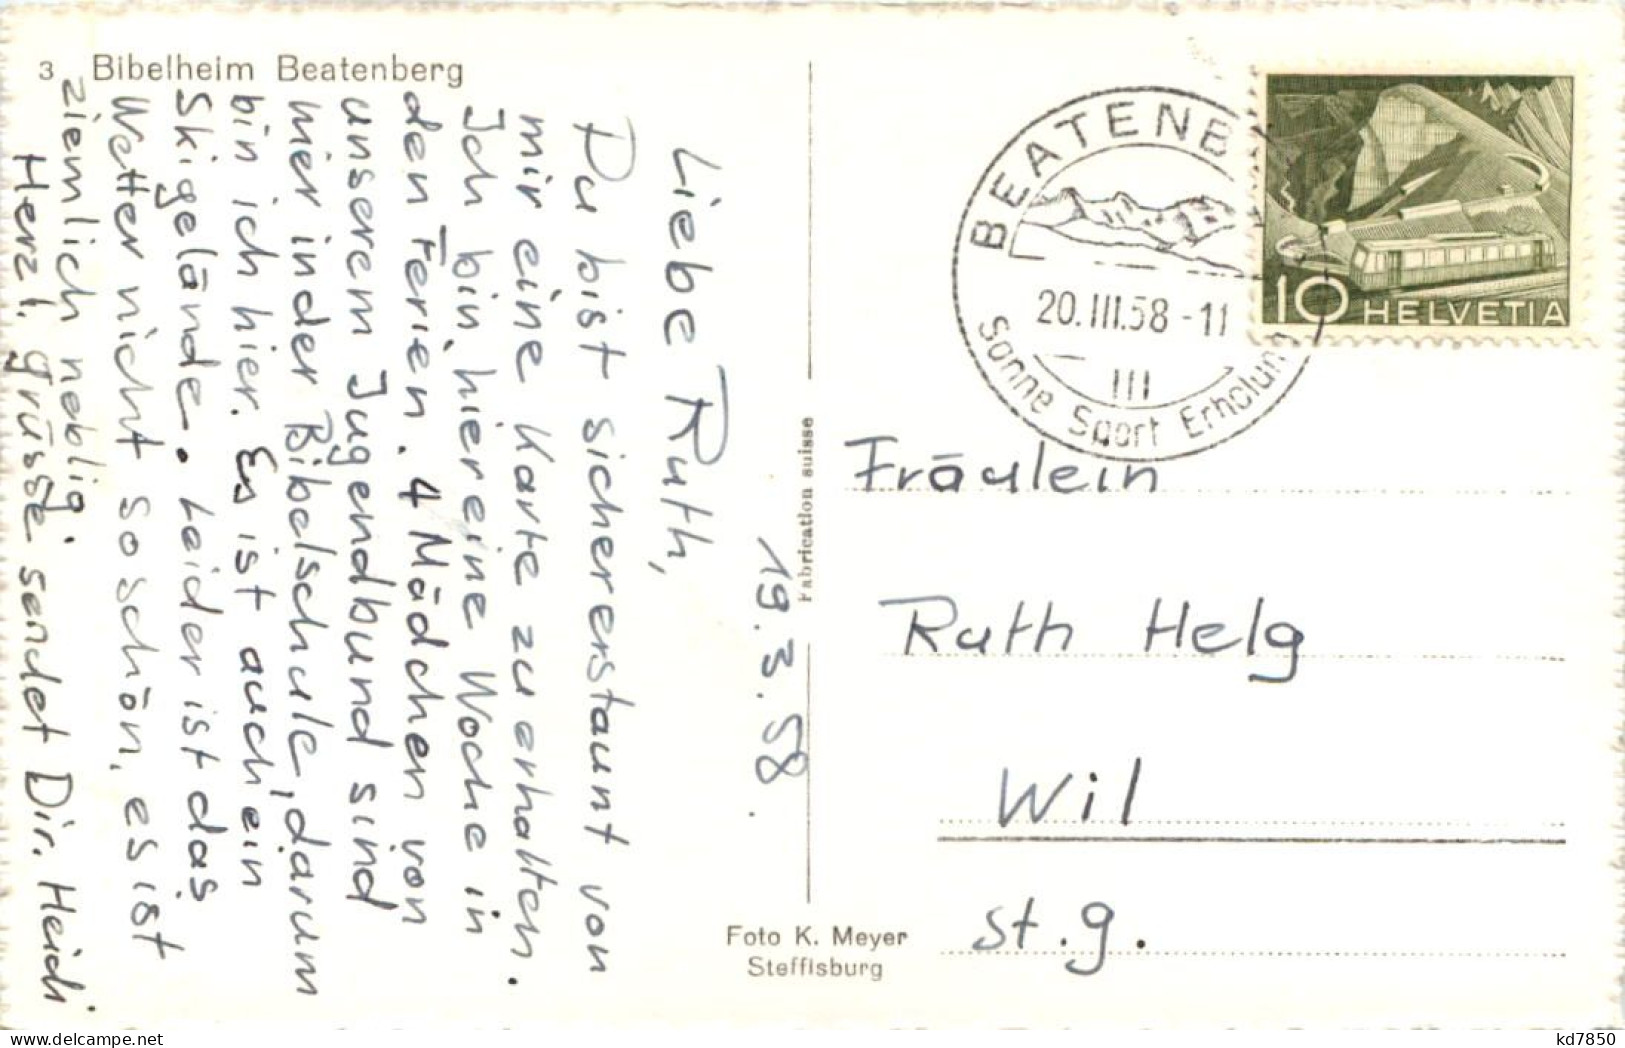 3 Bibelheim Beatenberg
19. 3. 58.
Liebe Ruth,
Du bist sicher erstaunt von
mir eine Karte zu erhalten.
Ich bin hier eine Woche in
den Ferien. 4 Mädchen von
unserem Jugendbund sind
hier in der Bibelschule, darum
bin ich hier. Es ist auch ein
Skigelände. Leider ist das
Wetter nicht so schön, es ist
ziemlich neblig.
Herzl. grüsse sendet Dir. Heidi
Fabrication suisse
Foto K. Meyer
Steffisburg
BEATENB
20.III.58-11
III
Sonne Sport Erholung
10 HELVETIA
Fräulein
Ruth Helg
Wil
St. g.
delcampe.net
kd7850